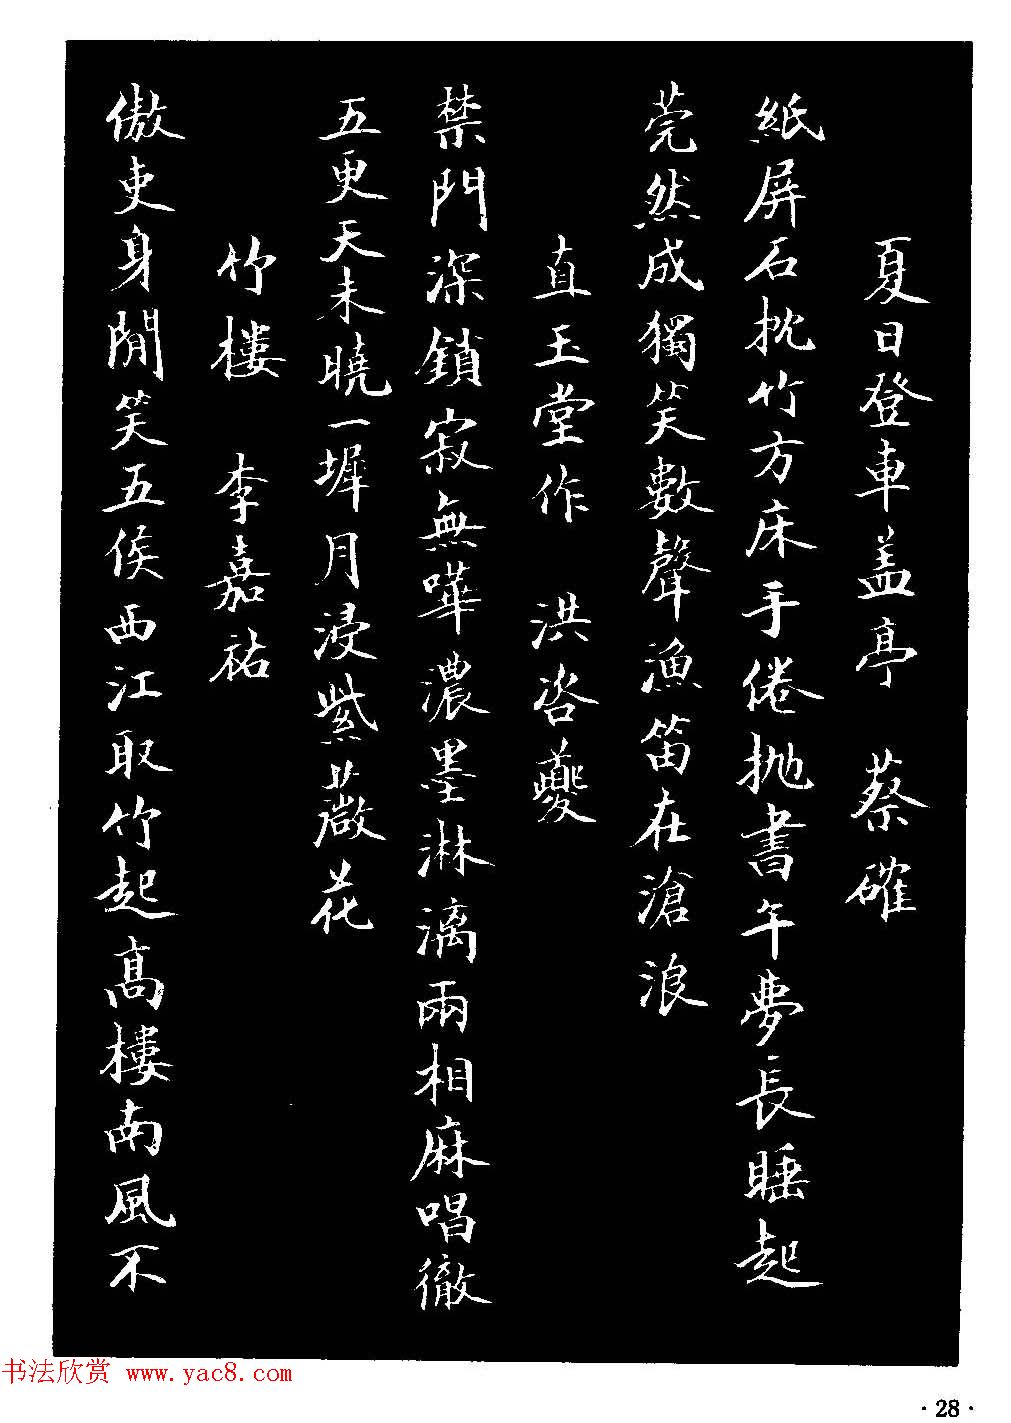 夏日登車盖亭 蔡確
紙屏石枕竹方床手倦抛書午夢長睡起
莞然成獨笑數聲漁笛在滄浪
直玉堂作 洪咨夔
禁門深鎖寂無嘩濃墨淋漓兩相麻唱徹
五更天未曉一墀月浸紫薇花
竹樓 李嘉祐
傲吏身閒笑五侯西江取竹起高樓南風不
书法欣赏 www.yac8.com
·28·